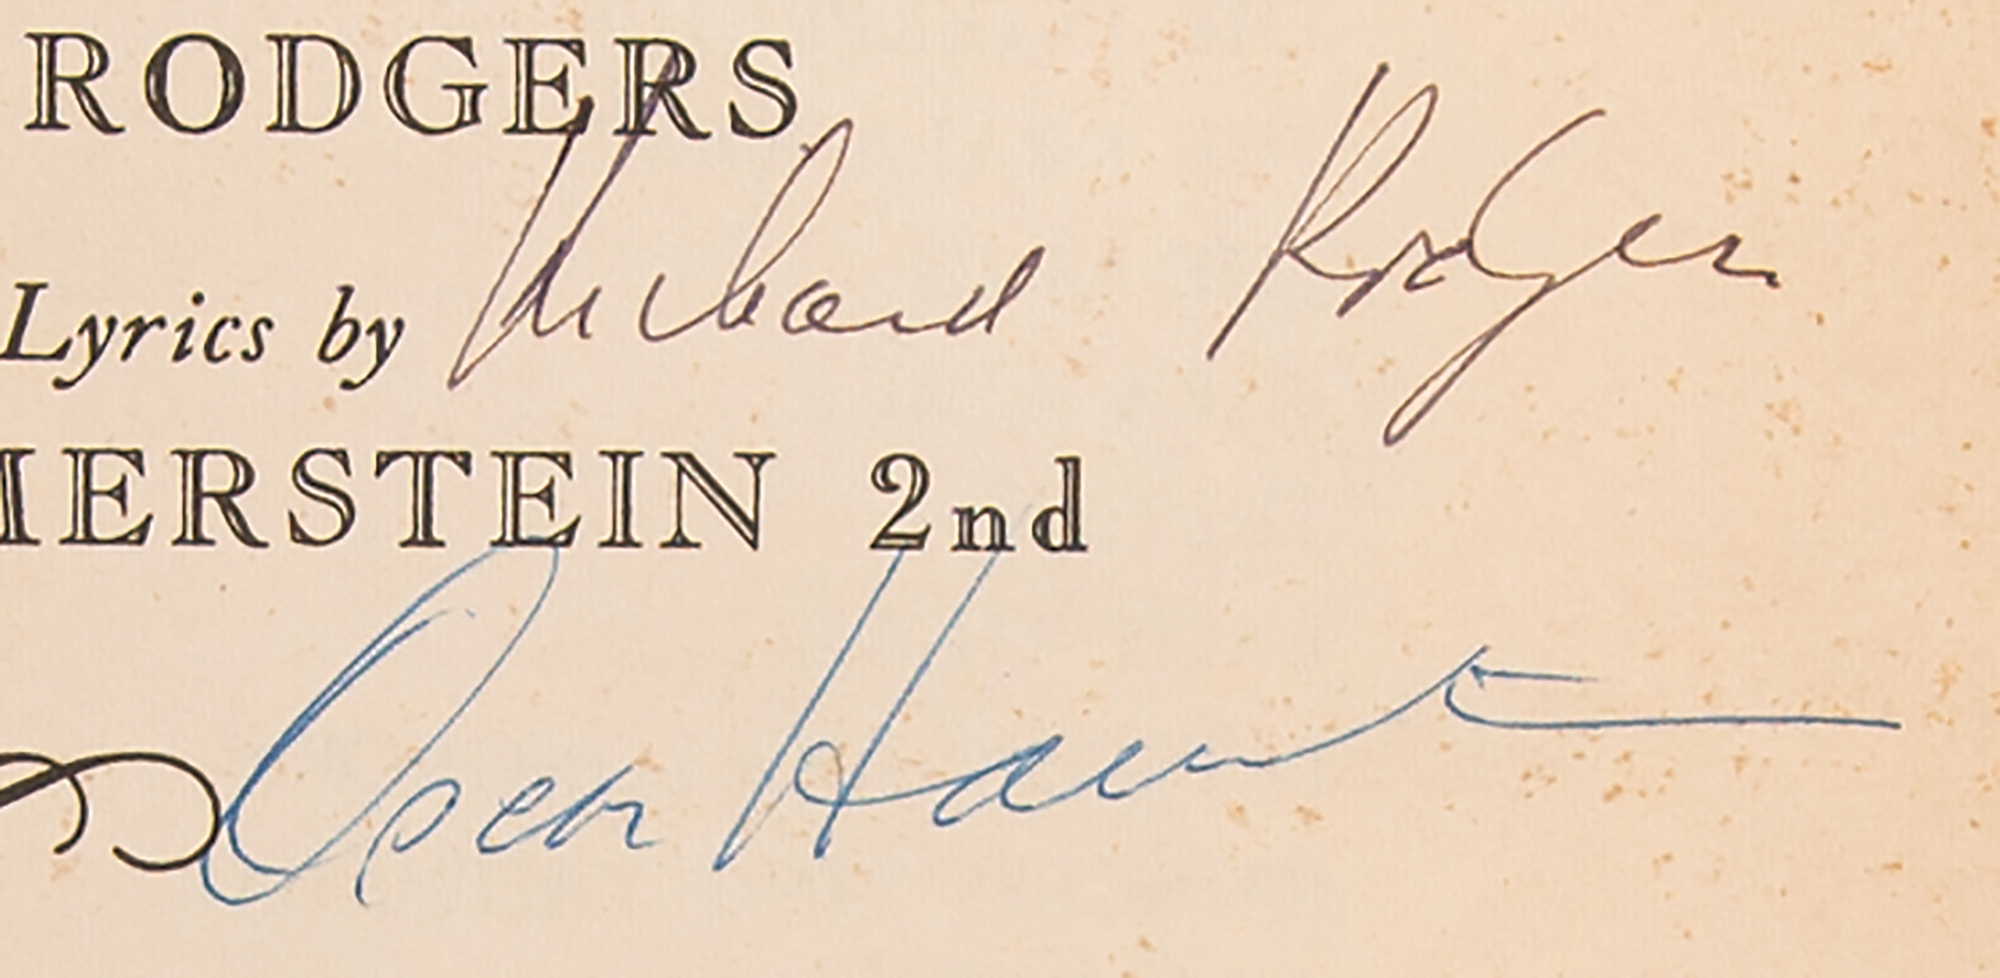 RODGERS
Richard Rodgers
Lyrics by
MERSTEIN 2nd
Oscar Hammerstein